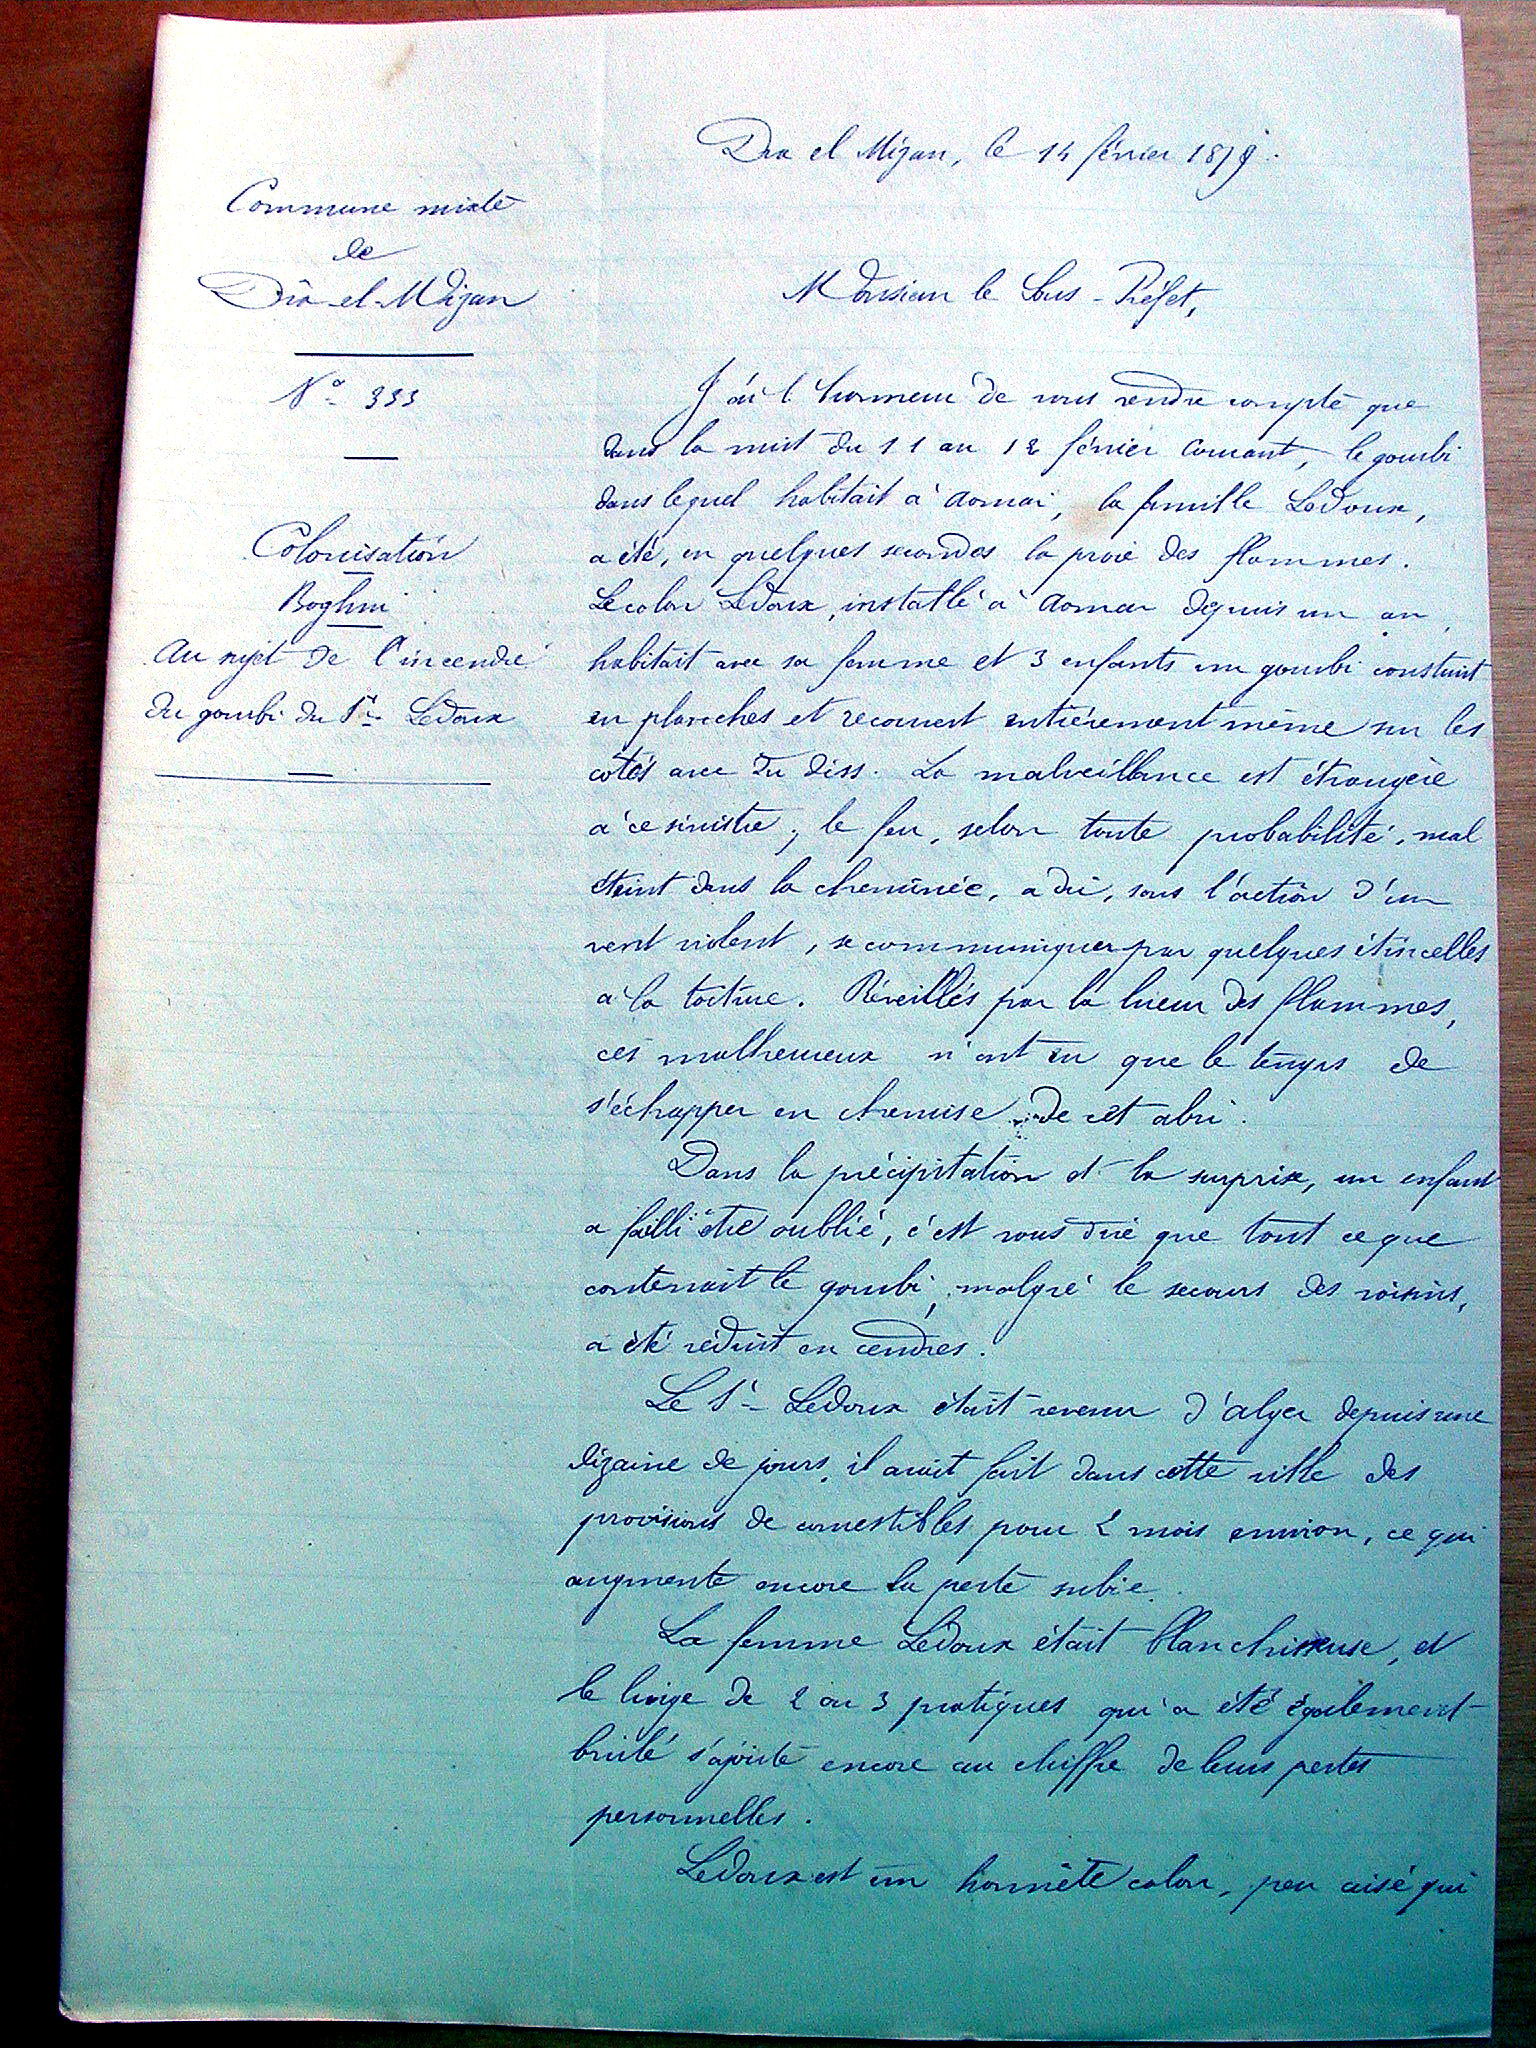 Dra el Mizan, le 14 février 1879.
Commune mixte
de
Drâ-el-Mizan
N° 333
Colonisation
Boghni
Au sujet de l'incendie
du gourbi du Sr Ledoux
Monsieur le Sous-Préfet,
J'ai l'honneur de vous rendre compte que
dans la nuit du 11 au 12 février courant, le gourbi
dans lequel habitait à Aomar, la famille Ledoux,
a été, en quelques secondes la proie des flammes.
Le colon Ledoux, installé à Aomar depuis un an,
habitait avec sa femme et 3 enfants un gourbi construit
en planches et recouvert entièrement même sur les
côtés avec du diss. La malveillance est étrangère
à ce sinistre, le feu, selon toute probabilité, mal
éteint dans la cheminée, a dû, sous l'action d'un
vent violent, se communiquer par quelques étincelles
à la toiture. Réveillés par la lueur des flammes,
ces malheureux n'ont eu que le temps de
s'échapper en chemise de cet abri.
Dans la précipitation et la surprise, un enfant
a failli être oublié, c'est vous dire que tout ce que
contenait le gourbi, malgré le secours des voisins,
a été réduit en cendres.
Le Sr Ledoux était revenu d'Alger depuis une
dizaine de jours, il avait fait dans cette ville des
provisions de comestibles pour 2 mois environ, ce qui
augmente encore la perte subie.
La femme Ledoux était blanchisseuse, et
le linge de 2 ou 3 pratiques qui a été également
brulé s'ajoute encore au chiffre de leurs pertes
personnelles.
Ledoux est un honnête colon, peu aisé qui